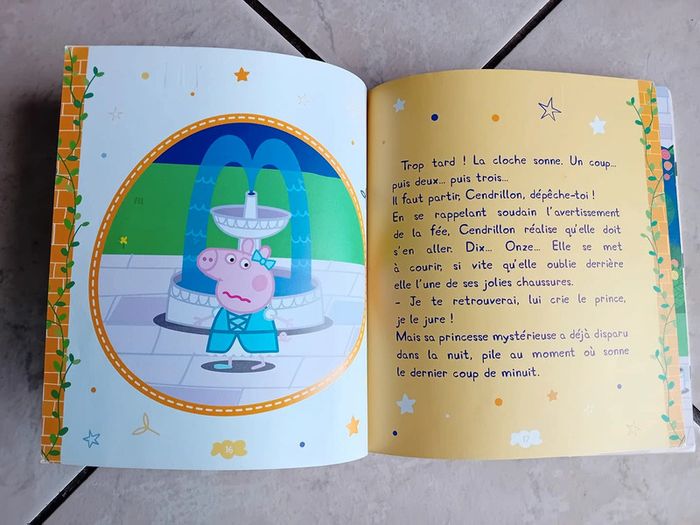 Trop tard ! La cloche sonne. Un coup...
puis deux... puis trois...
Il faut partir, Cendrillon, dépêche-toi !
En se rappelant soudain l'avertissement
de la fée, Cendrillon réalise qu'elle doit
s'en aller. Dix... Onze... Elle se met
à courir, si vite qu'elle oublie derrière
elle l'une de ses jolies chaussures.
- Je te retrouverai, lui crie le prince,
je le jure !
Mais sa princesse mystérieuse a déjà disparu
dans la nuit, pile au moment où sonne
le dernier coup de minuit.
16
17